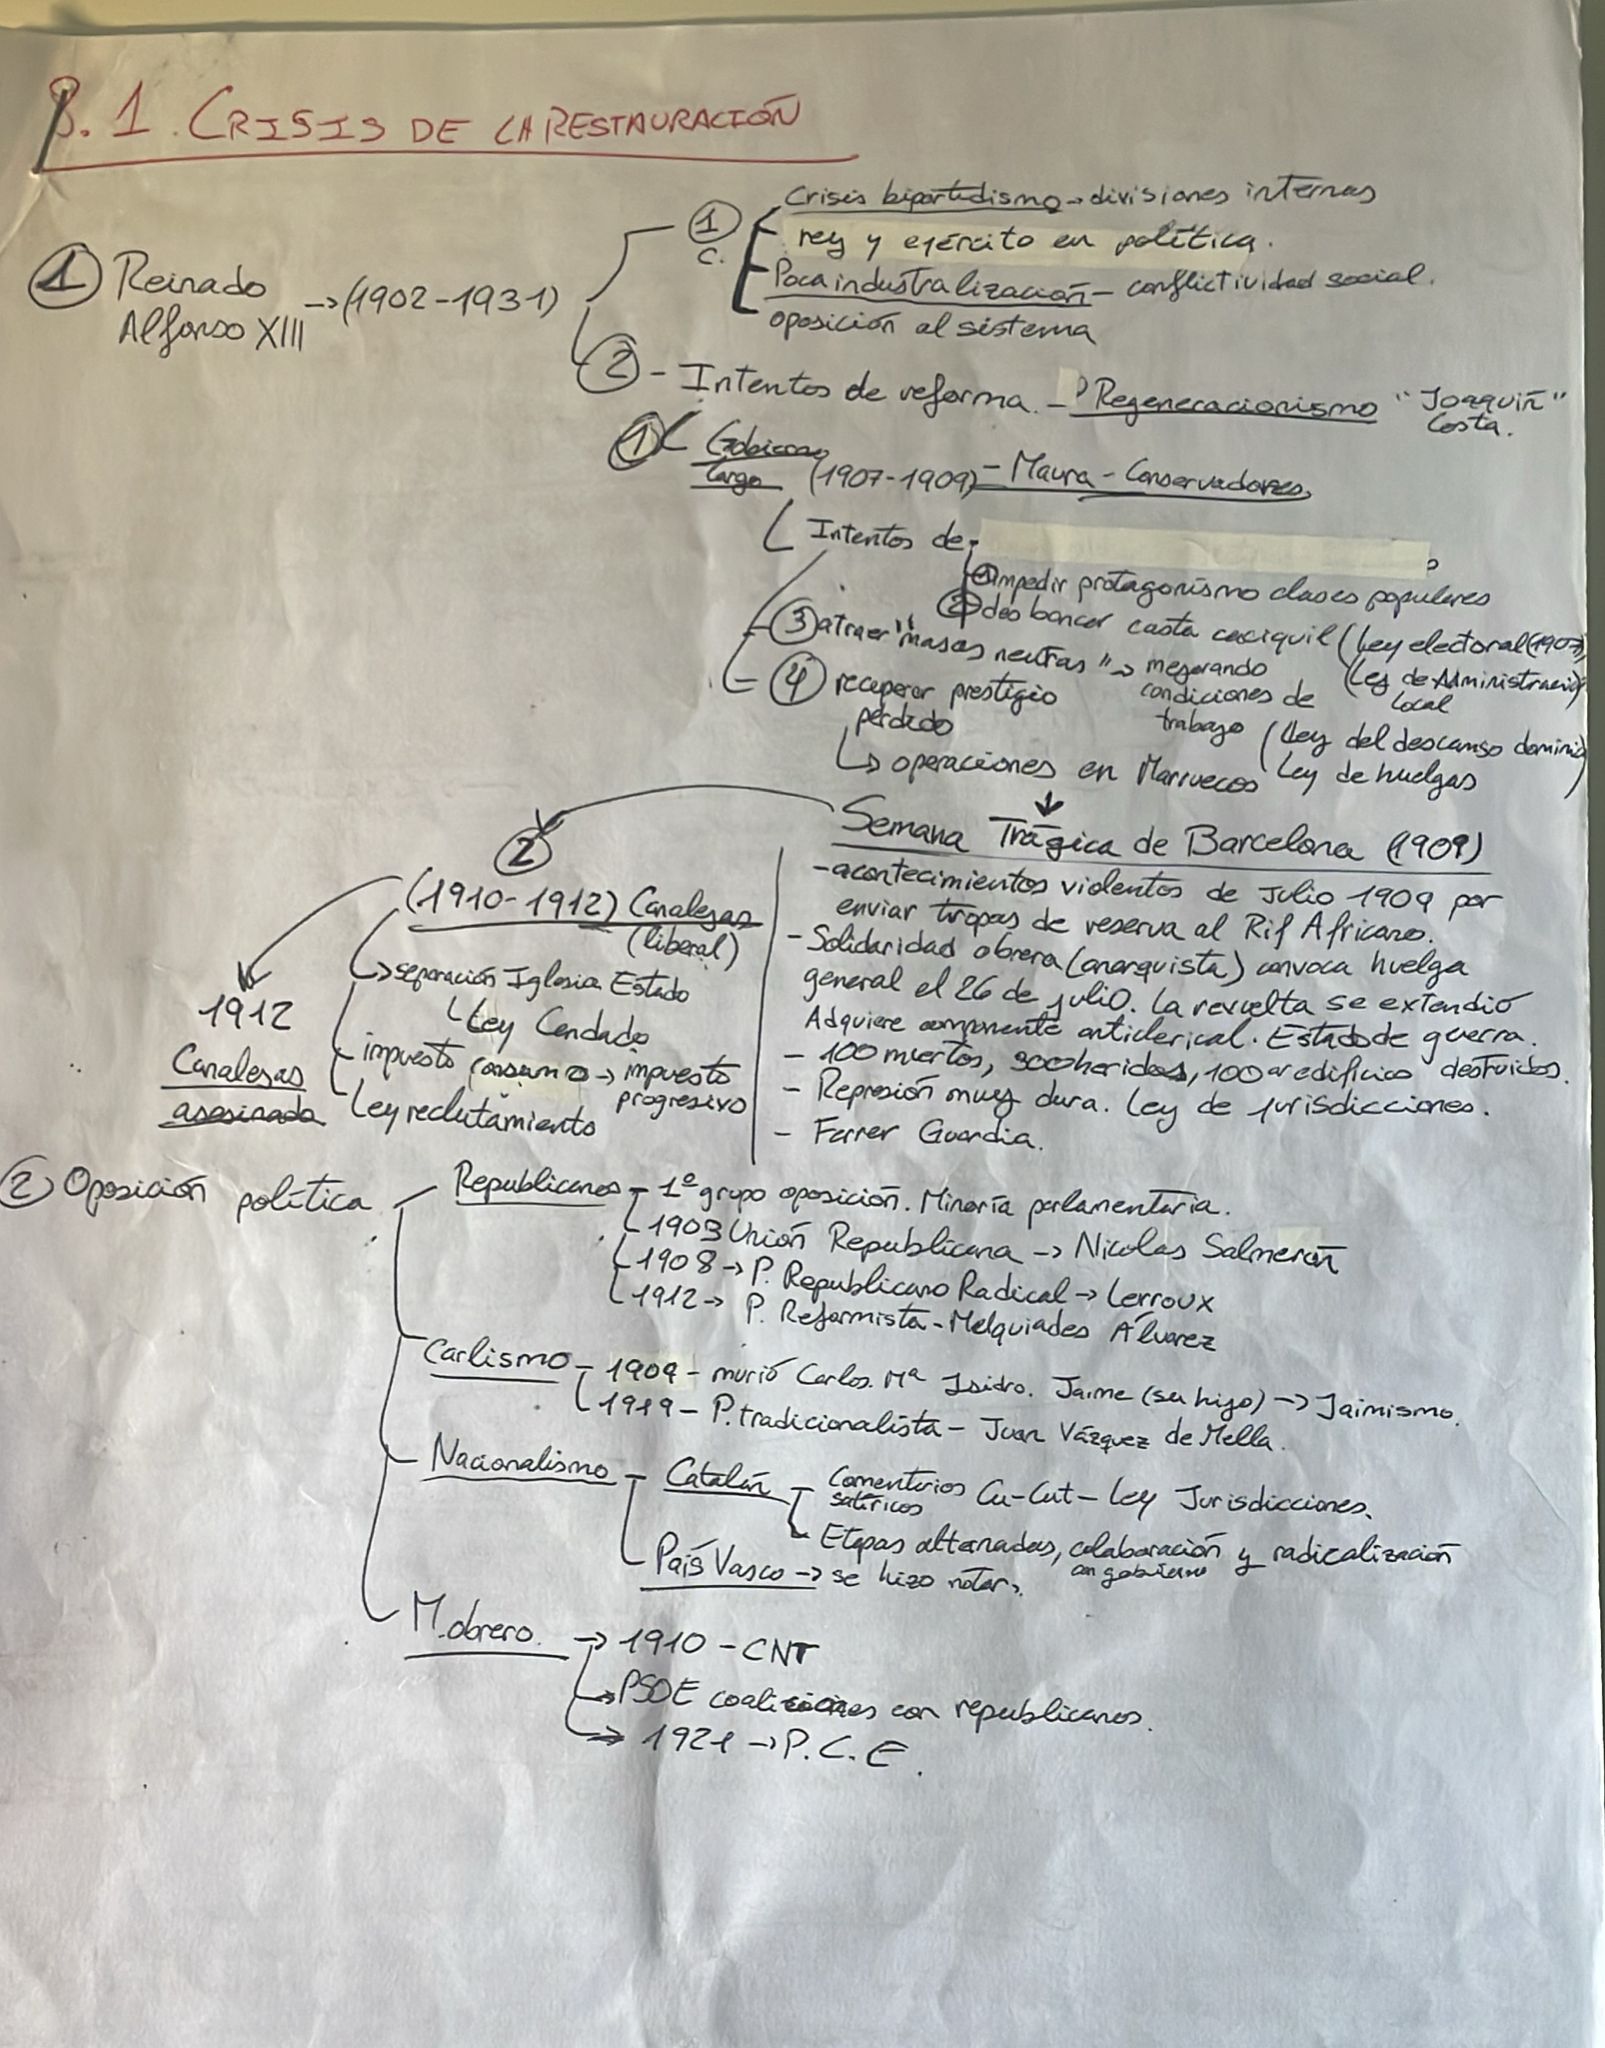 8.1. CRISIS DE LA RESTAURACIÓN
① Reinado Alfonso XIII → (1902-1931)
① C.
Crisis bipartidismo → divisiones internas
rey y ejército en política.
Poca industralización - conflictividad social.
oposición al sistema
② - Intentos de reforma. - Regeneracionismo "Joaquín" Costa.
① Gobierno largo (1907-1909) - Maura - Conservadores,
Intentos de
① impedir protagonismo clases populares
② desbancar casta caciquil (Ley electoral (1907)
(Ley de Administració Local
③ atraer "masas neutras" → mejorando condiciones de trabajo
(Ley del descanso domini)
Ley de huelgas
④ recuperar prestigio perdido
↳ operaciones en Marruecos
Semana Trágica de Barcelona (1909)
- acontecimientos violentos de Julio 1909 por
enviar tropas de reserva al Rif Africano.
- Solidaridad obrera (anarquista) convoca huelga
general el 26 de julio. La revuelta se extendió
Adquiere componente anticlerical. Estado de guerra.
- 100 muertos, 300 heridos, 100 edificio destruidos.
- Represión muy dura. Ley de Jurisdicciones.
- Ferrer Guardia.
②
(1910-1912) Canalejas
(liberal)
↳ separación Iglesia Estado
Ley Candado
impuesto consumo → impuesto
progresivo
Ley reclutamiento
1912
Canalejas
asesinado
② Oposición política
Republicanos - 1º grupo oposición. Minoría parlamentaria.
1903 Unión Republicana → Nicolas Salmerón
1908 → P. Republicano Radical → Lerroux
1912 → P. Reformista - Melquiades Álvarez
Carlismo - 1909 - murió Carlos. Mª Isidro. Jaime (su hijo) → Jaimismo.
1919 - P. tradicionalista - Juan Vázquez de Mella.
Nacionalismo - Catalán - Comentarios satíricos Cu-Cut - Ley Jurisdicciones.
Etapas alternadas, colaboración con gobierno y radicalización
País Vasco → se hizo notar.
M. obrero. → 1910 - CNT
→ PSOE coaliciones con republicanos.
→ 1921 → P.C.E.